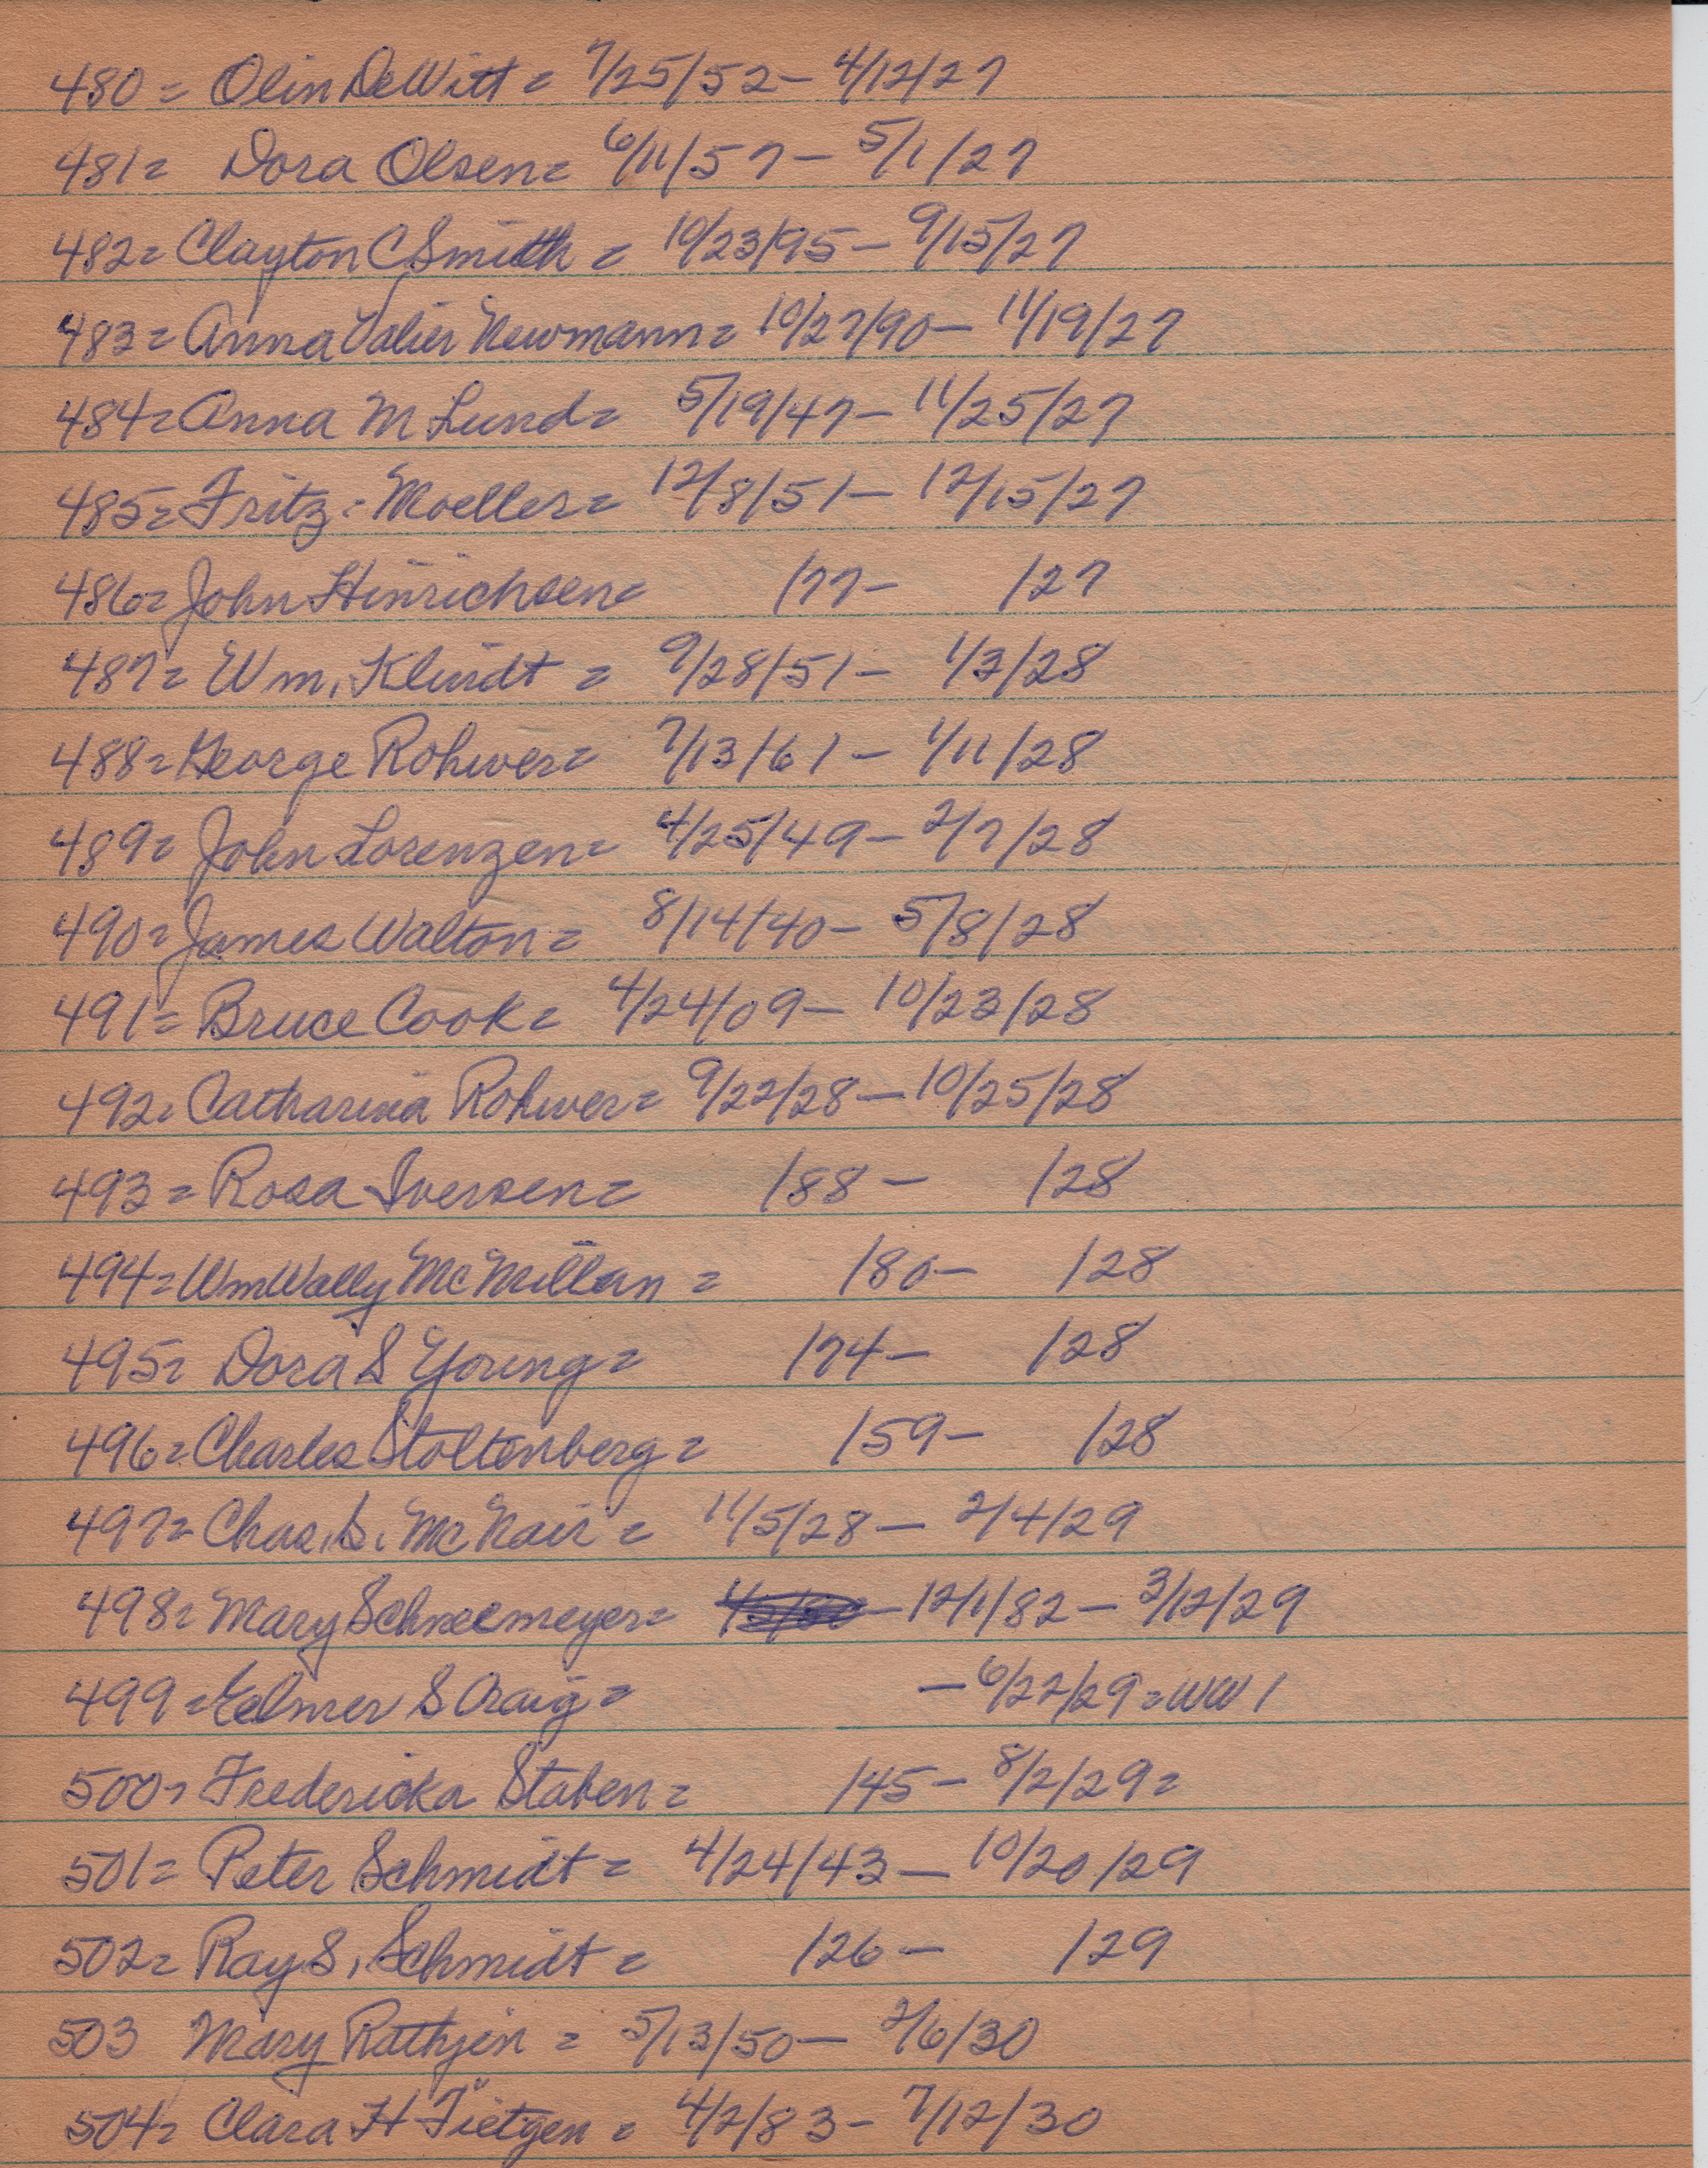 480 = Olin DeWitt = 7/25/52 - 4/12/27
481 = Dora Olsen = 6/11/57 - 5/1/27
482 = Clayton C Smith = 10/23/95 - 9/15/27
483 = Anna Valier Newmann = 10/27/90 - 11/19/27
484 = Anna M Lund = 5/19/47 - 11/25/27
485 = Fritz Moeller = 12/8/51 - 12/15/27
486 = John Hinrichsen = /77 - /27
487 = Wm. Klindt = 9/28/51 - 1/3/28
488 = George Rohwer = 7/13/61 - 1/11/28
489 = John Lorenzen = 4/25/49 - 2/7/28
490 = James Walton = 8/14/40 - 5/8/28
491 = Bruce Cook = 4/24/09 - 10/23/28
492 = Catharina Rohwer = 9/22/28 - 10/25/28
493 = Rosa Iversen = /88 - /28
494 = Wm Wally McMillan = /80 - /28
495 = Dora S Young = /74 - /28
496 = Charles Stoltenberg = /59 - /28
497 = Chas. S. McNair = 11/5/28 - 2/4/29
498 = Mary Schneemeyer = - 12/1/82 - 3/12/29
499 = Elmer S Craig = - 6/22/29 = WW 1
500 = Fredericka Staben = /45 - 8/2/29 =
501 = Peter Schmidt = 4/24/43 - 10/20/29
502 = Ray S. Schmidt = /26 - /29
503 Mary Rathjen = 5/13/50 - 2/6/30
504 = Clara H Tietgen = 4/2/83 - 7/12/30